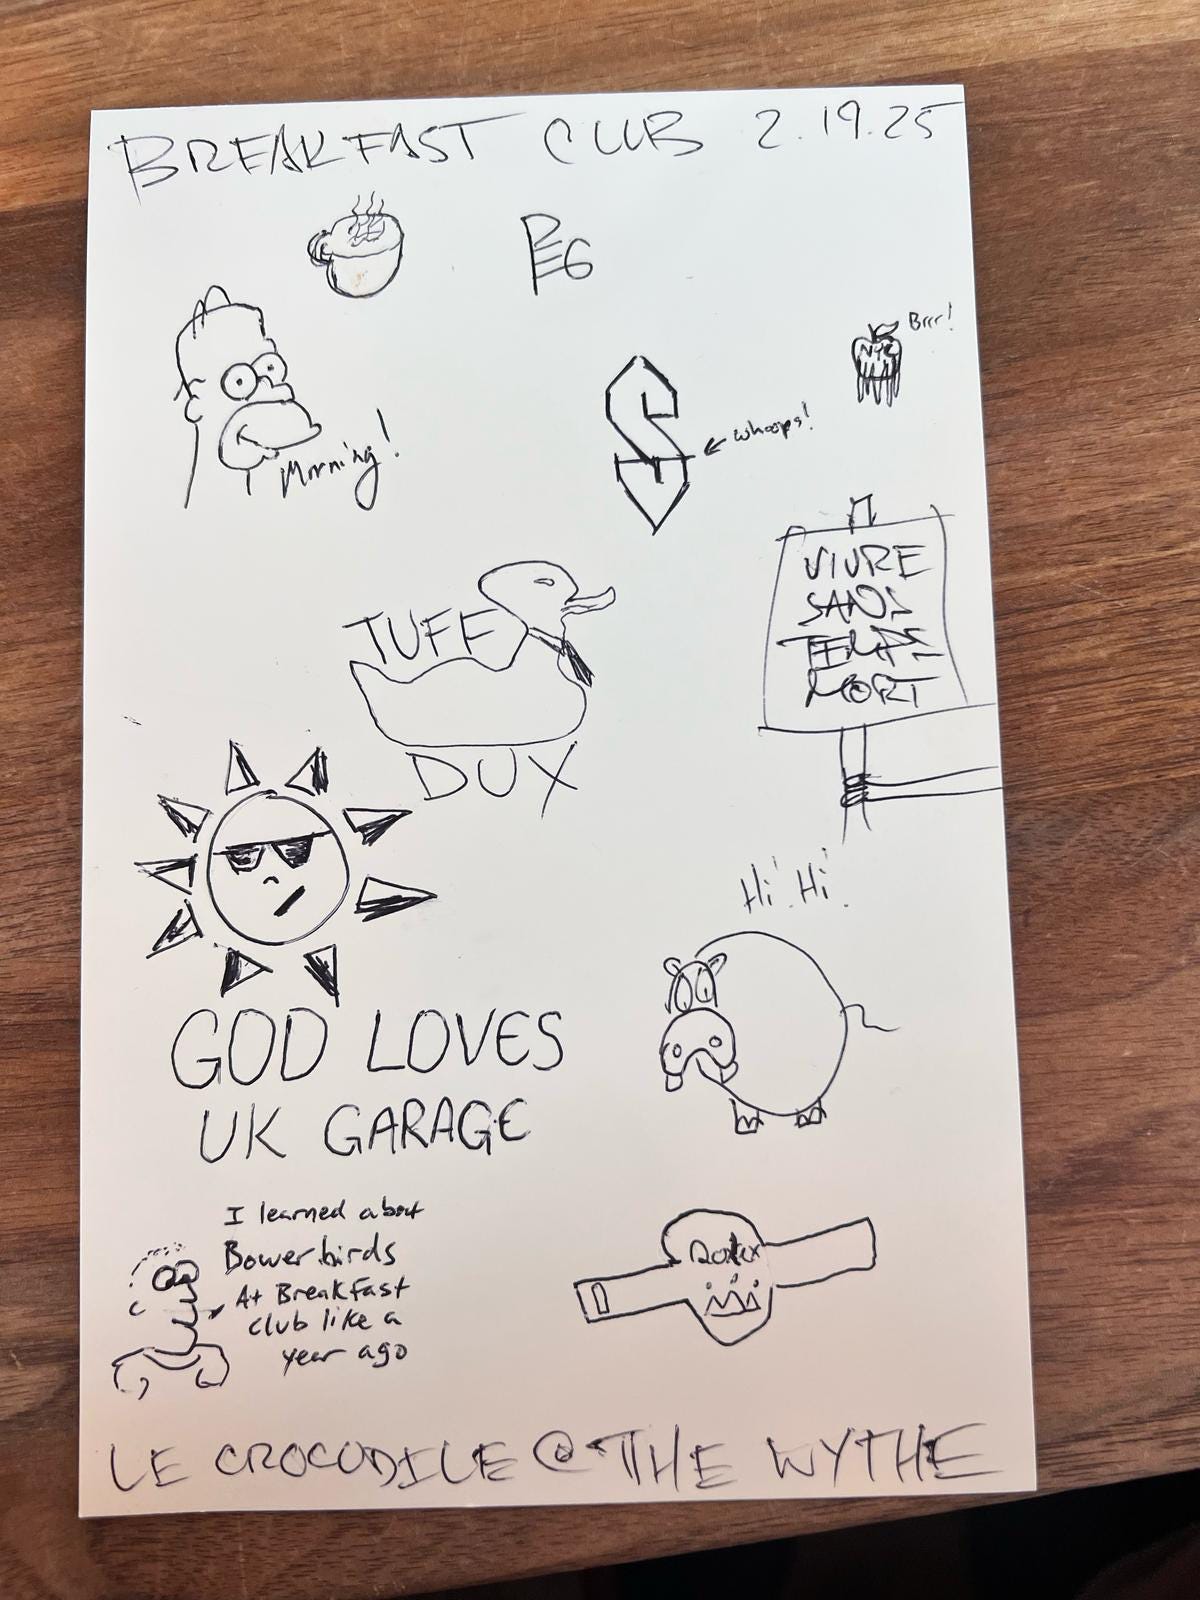 BREAKFAST CLUB 2.19.25
Brrr!
NYC
Morning!
whoops!
VIVRE
SANS
TEMPS
MORT
TUFF
DUX
Hi! Hi!
GOD LOVES
UK GARAGE
I learned about
Bowerbirds
At Breakfast
club like a
year ago
Rolex
LE CROCODILE @ THE WYTHE